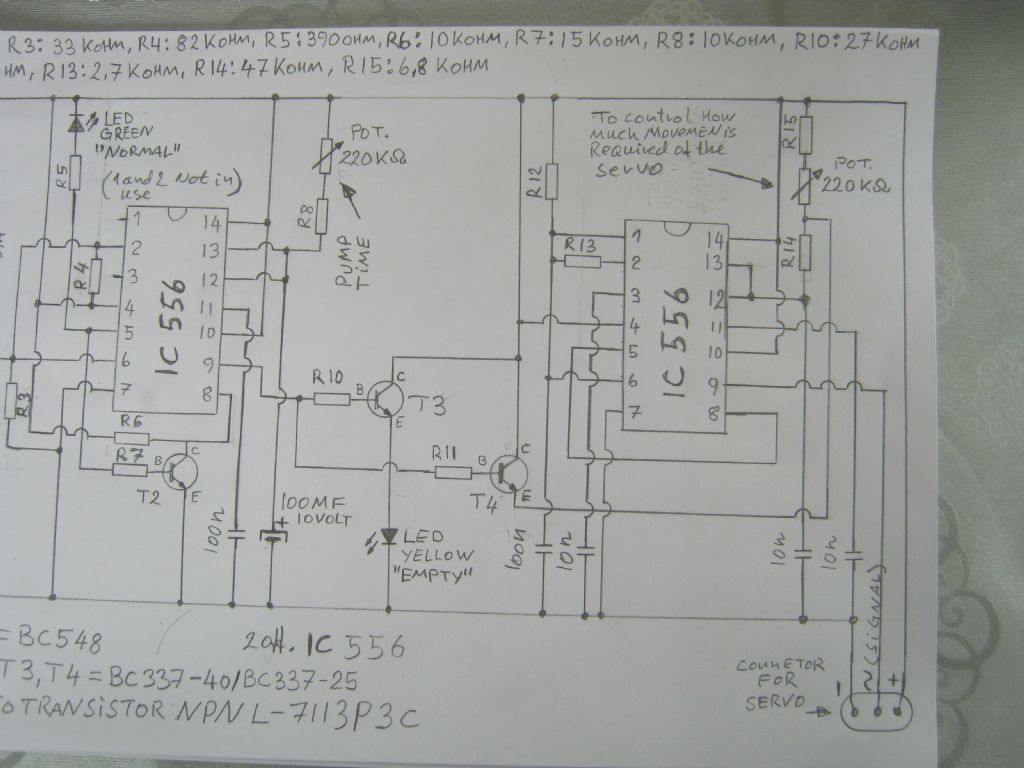 R3: 33 KOHM, R4: 82 KOHM, R5: 390 OHM, R6: 10 KOHM, R7: 15 KOHM, R8: 10 KOHM, R10: 27 KOHM
HM, R13: 2,7 KOHM, R14: 47 KOHM, R15: 6,8 KOHM
LED
GREEN
"NORMAL"
(1 and 2 Not in)
use
R5
R4
R3
1
2
3
4
5
6
7
14
13
12
11
10
9
8
IC 556
R6
R7
B
C
E
T2
POT.
220KΩ
R8
PUMP
TIME
R10
B
C
E
T3
R11
B
C
E
T4
100n
+
100MF
10VOLT
LED
YELLOW
"EMPTY"
To control How
much MOVEMEN is
Required of the
servo
R12
R13
1
2
3
4
5
6
7
14
13
12
11
10
9
8
IC 556
R15
POT.
220KΩ
R14
100n
10n
10n
10n
= BC548
2 OFF. IC 556
T3, T4 = BC337-40/BC337-25
TO TRANSISTOR NPN L-7113P3C
CONNETOR
FOR
SERVO
-
~ (SIGNAL)
+